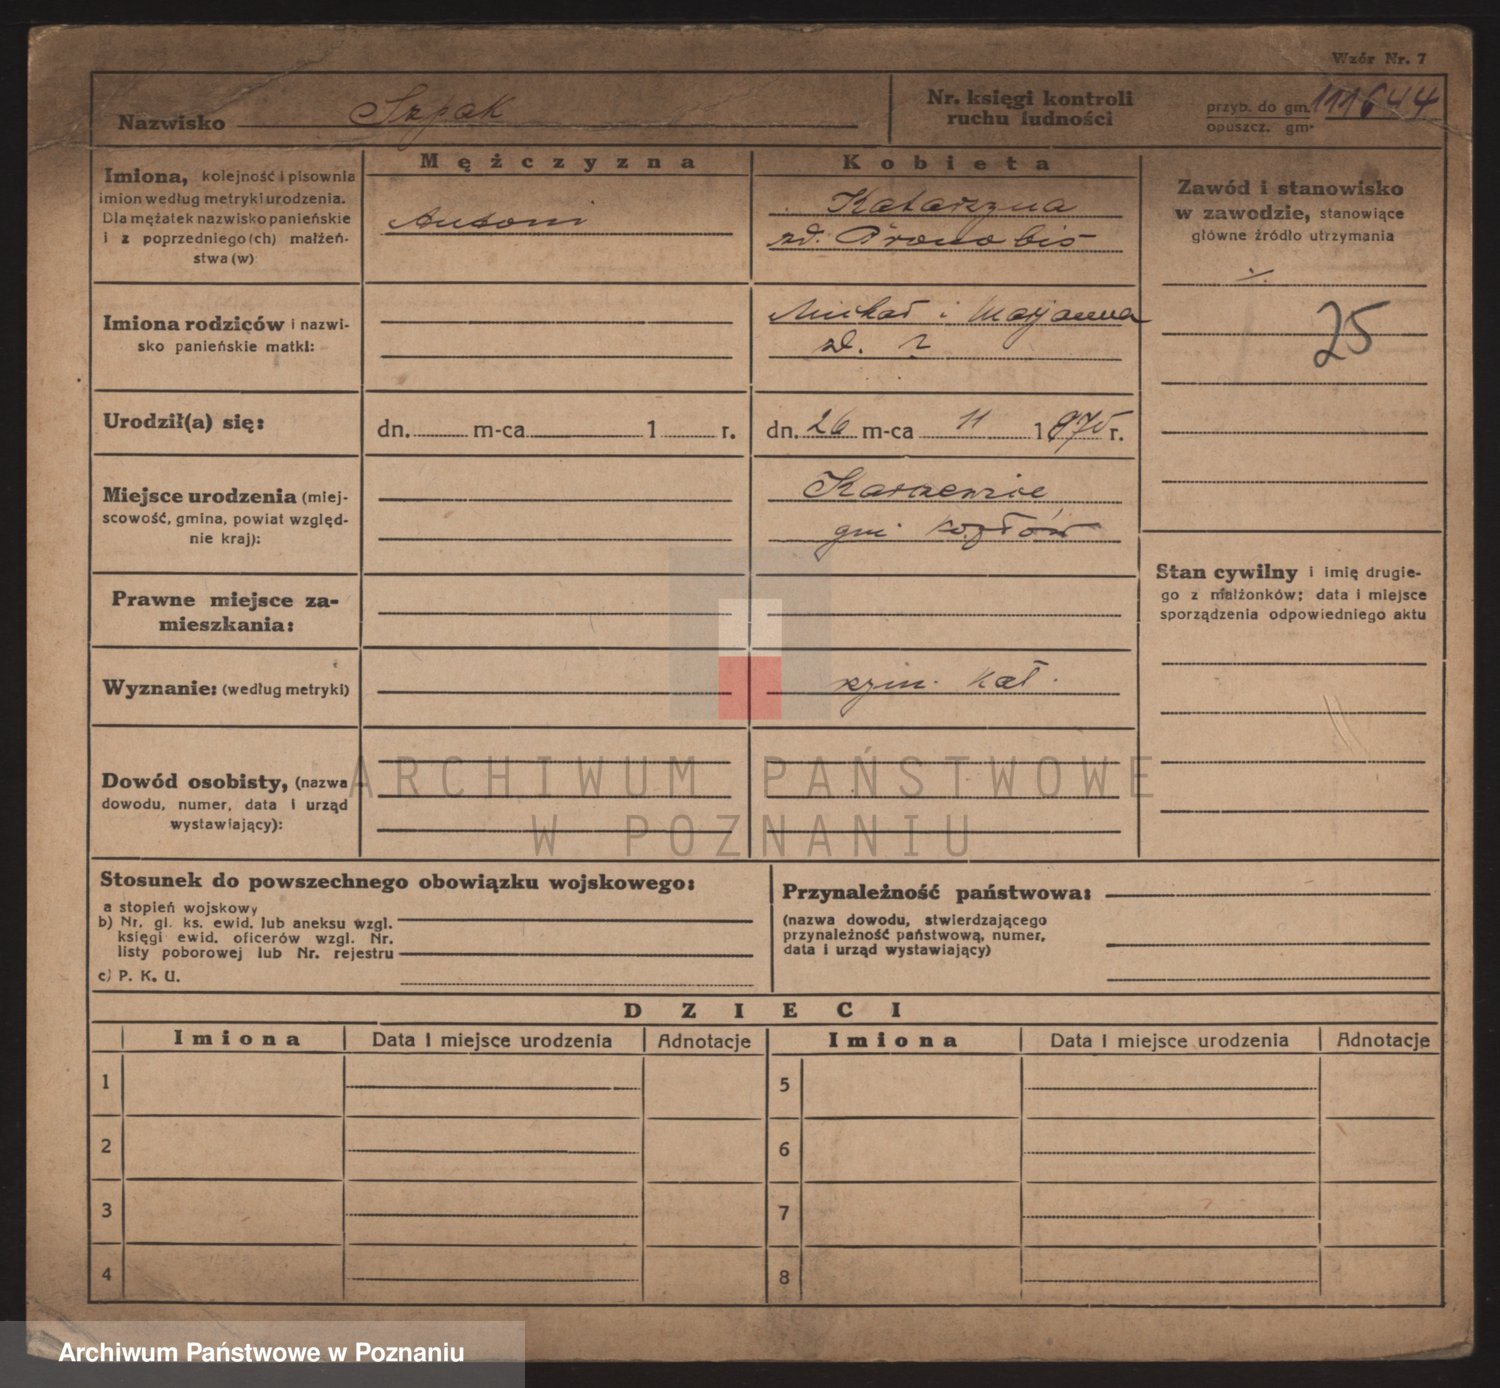 Wzór Nr. 7
Nazwisko Szpak
Nr. księgi kontroli
ruchu ludności
przyb. do gm. 111644
opuszcz. gm.
Mężczyzna
Kobieta
Imiona, kolejność i pisownia
imion według metryki urodzenia.
Dla mężatek nazwisko panieńskie
i z poprzedniego (ch) małżeń-
stwa (w)
Antoni
Katarzyna
zd. Pronobis
Zawód i stanowisko
w zawodzie, stanowiące
główne źródło utrzymania
25
Imiona rodziców i nazwi-
sko panieńskie matki:
Michał i Marjanna
zd. ?
Urodził(a) się:
dn. m-ca 1 r.
dn. 26 m-ca 11 1870 r.
Miejsce urodzenia (miej-
scowość, gmina, powiat względ-
nie kraj):
gm. Kozłów
Prawne miejsce za-
mieszkania:
Stan cywilny i imię drugie-
go z małżonków; data i miejsce
sporządzenia odpowiedniego aktu
Wyznanie: (według metryki)
rzym. kat.
Dowód osobisty, (nazwa
dowodu, numer, data i urząd
wystawiający):
ARCHIWUM PAŃSTWOWE
W POZNANIU
Stosunek do powszechnego obowiązku wojskowego:
a stopień wojskowy
b) Nr. gl. ks. ewid. lub aneksu wzgl.
księgi ewid. oficerów wzgl. Nr.
listy poborowej lub Nr. rejestru
c) P. K. U.
Przynależność państwowa:
(nazwa dowodu, stwierdzającego
przynależność państwową, numer,
data i urząd wystawiający)
DZIECI
Imiona Data i miejsce urodzenia Adnotacje Imiona Data i miejsce urodzenia Adnotacje
1 5
2 6
3 7
4 8
Archiwum Państwowe w Poznaniu